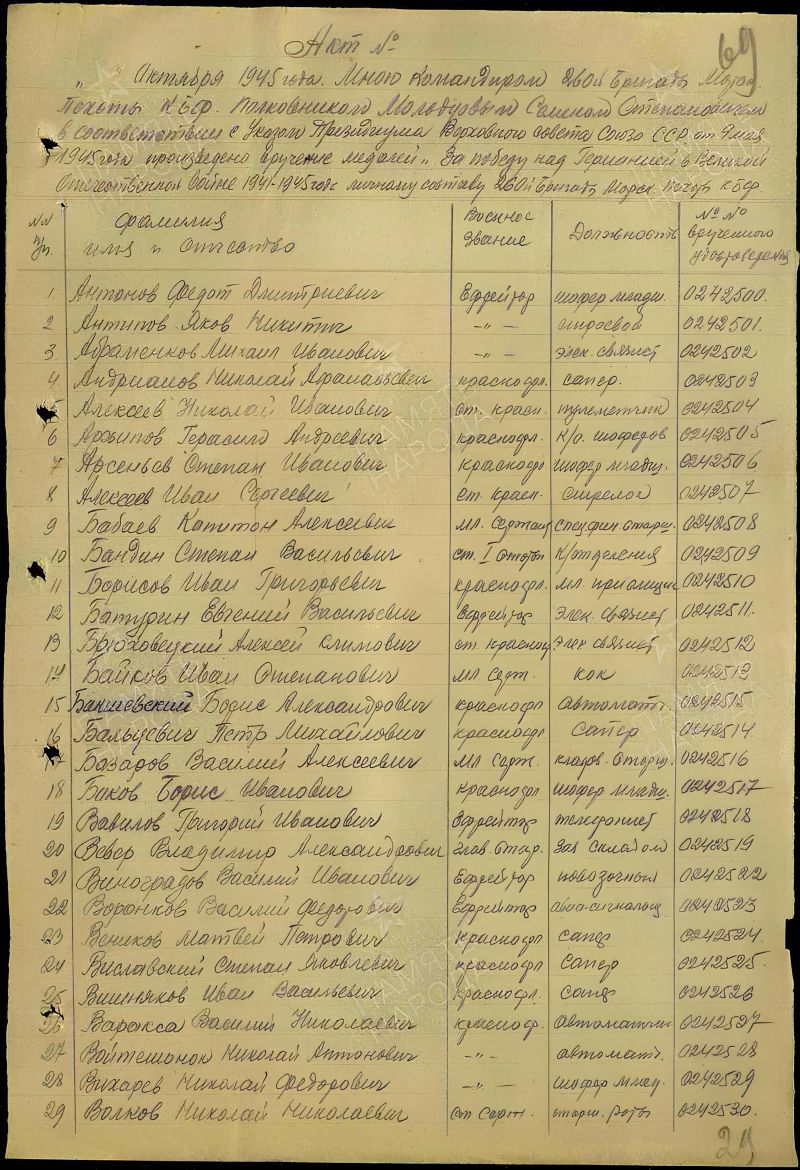 69
Акт №
" " Октября 1945 года. Мною Командиром 260й Бригады Морск.
Пехоты КБФ. Полковником Молодцовым Семеном Степановичем
в соответствии с Указом Президиума Верховного совета Союза ССР от 9 мая
1945 года произведено вручение медалей "За победу над Германией в Великой
Отечественной войне 1941-1945 годе личному составу 260й Бригады Морск. Пехоты КБФ.
№№ п/п. Фамилия имя и отчество Военное Звание Должность №№ врученного удостоверения
1. Антонов Федот Дмитриевич Ефрейтор шофер младш. 0242500.
2 Антипов Яков Никитич -"- 0242501.
3 Абраменков Михаил Иванович -"- элек. связист 0242502
4 Андрианов Николай Афанасьевич краснофл. сапер. 0242503
5 Алексеев Николай Иванович ст. красн. пулеметчик 0242504
6 Архипов Герасим Андреевич краснофл. к/о. шоферов 0242505
7 Арсеньев Степан Иванович краснофл шофер младш. 0242506
8 Алексеев Иван Сергеевич ст красн. стрелок 0242507
9 Бабаев Капитон Алексеевич мл. Сержант 0242508
10 Бандин Степан Васильевич ст. I Статьи к/отделения 0242509
11 Борисов Иван Григорьевич краснофл. мл. 0242510
12 Батурин Евгений Васильевич Ефрейтор Элек. связист 0242511.
13 Брюховецкий Алексей Климович ст. краснофл Элек связист 0242512
14 Байков Иван Степанович мл Серж. кок 0242513
15 Банишевский Борис Александрович краснофл автомат. 0242515
16 Бальцевич Петр Михайлович краснофл Сапер 0242514.
17 Базаров Василий Алексеевич мл Серж. кладов. Старш. 0242516
18 Баков Борис Иванович Краснофл шофер младш. 0242517
19 Вавилов Григорий Иванович Ефрейтор телефонист 0242518
20 Вевер Владимир Александрович Глав. Стар. Зав Складом 0242519
21 Виноградов Василий Иванович Ефрейтор повозочный 0242522
22 Воронков Василий Федорович Ефрейтор 0242523
23 Веников Матвей Петрович Краснофл сапер 0242524.
24 Виславский Степан Яковлевич краснофл Сапер 0242525.
25 Вишняков Иван Васильевич Краснофл. Сапер 0242526
26 Варакса Василий Николаевич краснофл. автоматчик 0242527
27 Войтешонок Николай Антонович -"- автомат. 0242528
28 Вихарев Николай Федорович -"- шофер млад. 0242529
29 Волков Николай Николаевич Ст Серж. старш. Роты 0242530.
29